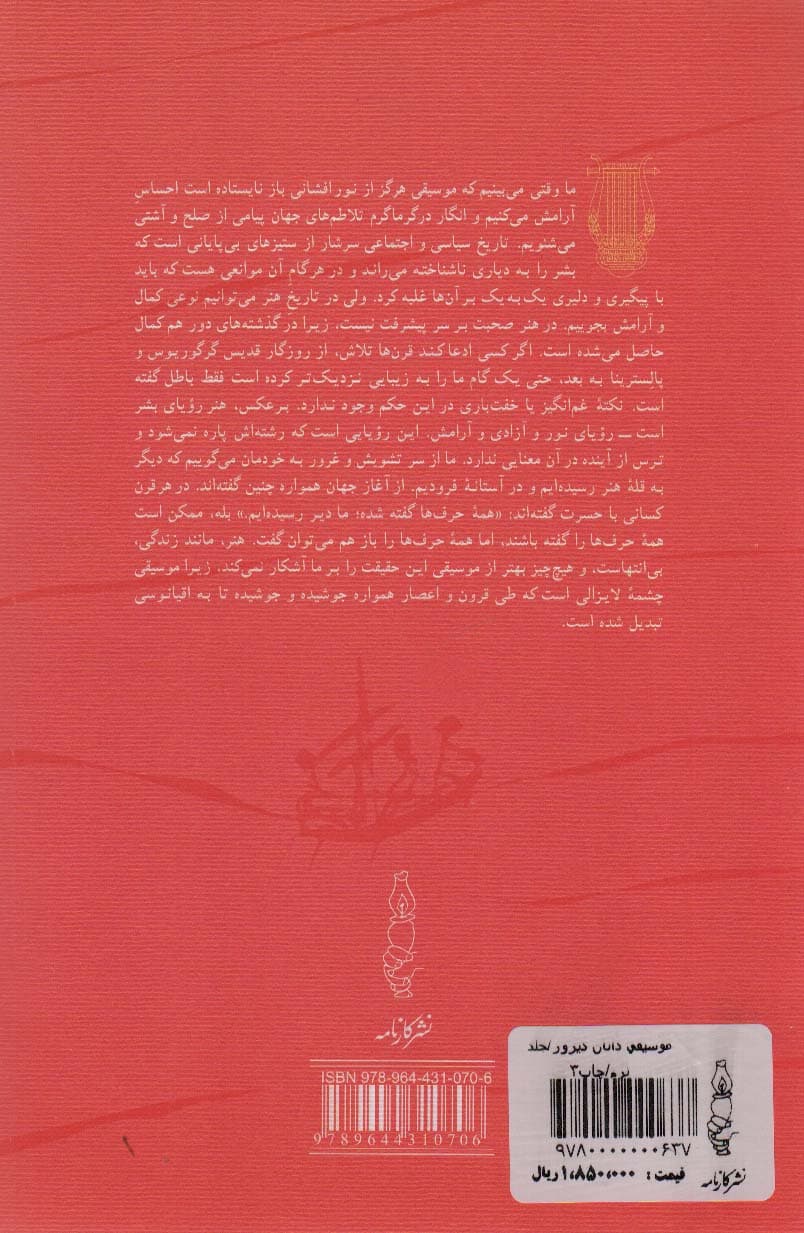 ما وقتی می‌بینیم که موسیقی هرگز از نورافشانی باز نایستاده است احساسِ
آرامش می‌کنیم و انگار درگرماگرم تلاطم‌های جهان پیامی از صلح و آشتی
می‌شنویم. تاریخ سیاسی و اجتماعی سرشار از ستیزهای بی‌پایانی است که
بشر را به دیاری ناشناخته می‌راند و در هرگامِ آن موانعی هست که باید
با پیگیری و دلیری یک‌به‌یک برآن‌ها غلبه کرد. ولی در تاریخِ هنر می‌توانیم نوعی کمال
و آرامش بجوییم. در هنر صحبت بر سر پیشرفت نیست، زیرا درگذشته‌های دور هم کمال
حاصل می‌شده است. اگر کسی ادعا کند قرن‌ها تلاش، از روزگار قدیس گرگوریوس و
پالسترینا به بعد، حتی یک گام ما را به زیبایی نزدیک‌تر کرده است فقط باطل گفته
است. نکتهٔ غم‌انگیز یا خفت‌باری در این حکم وجود ندارد. برعکس، هنر رؤیای بشر
است ـــ رؤیای نور و آزادی و آرامش. این رؤیایی است که رشته‌اش پاره نمی‌شود و
ترس از آینده در آن معنایی ندارد. ما از سر تشویش و غرور به خودمان می‌گوییم که دیگر
به قلهٔ هنر رسیده‌ایم و در آستانهٔ فرودیم. از آغاز جهان همواره چنین گفته‌اند. در هرقرن
کسانی با حسرت گفته‌اند: «همهٔ حرف‌ها گفته شده؛ ما دیر رسیده‌ایم.» بله، ممکن است
همهٔ حرف‌ها را گفته باشند، اما همهٔ حرف‌ها را باز هم می‌توان گفت. هنر، مانند زندگی،
بی‌انتهاست، و هیچ‌چیز بهتر از موسیقی این حقیقت را بر ما آشکار نمی‌کند. زیرا موسیقی
چشمهٔ لایزالی است که طی قرون و اعصار همواره جوشیده و جوشیده تا به اقیانوسی
تبدیل شده است.
نشر کارنامه
ISBN 978-964-431-070-6
9789644310706
موسیقی دانان دیروز/جلد
نرم/چاپ۳
۹۷۸۰۰۰۰۰۰۰۶۳۷
قیمت : ۱,۸۵۰,۰۰۰ ریال
نشر کارنامه